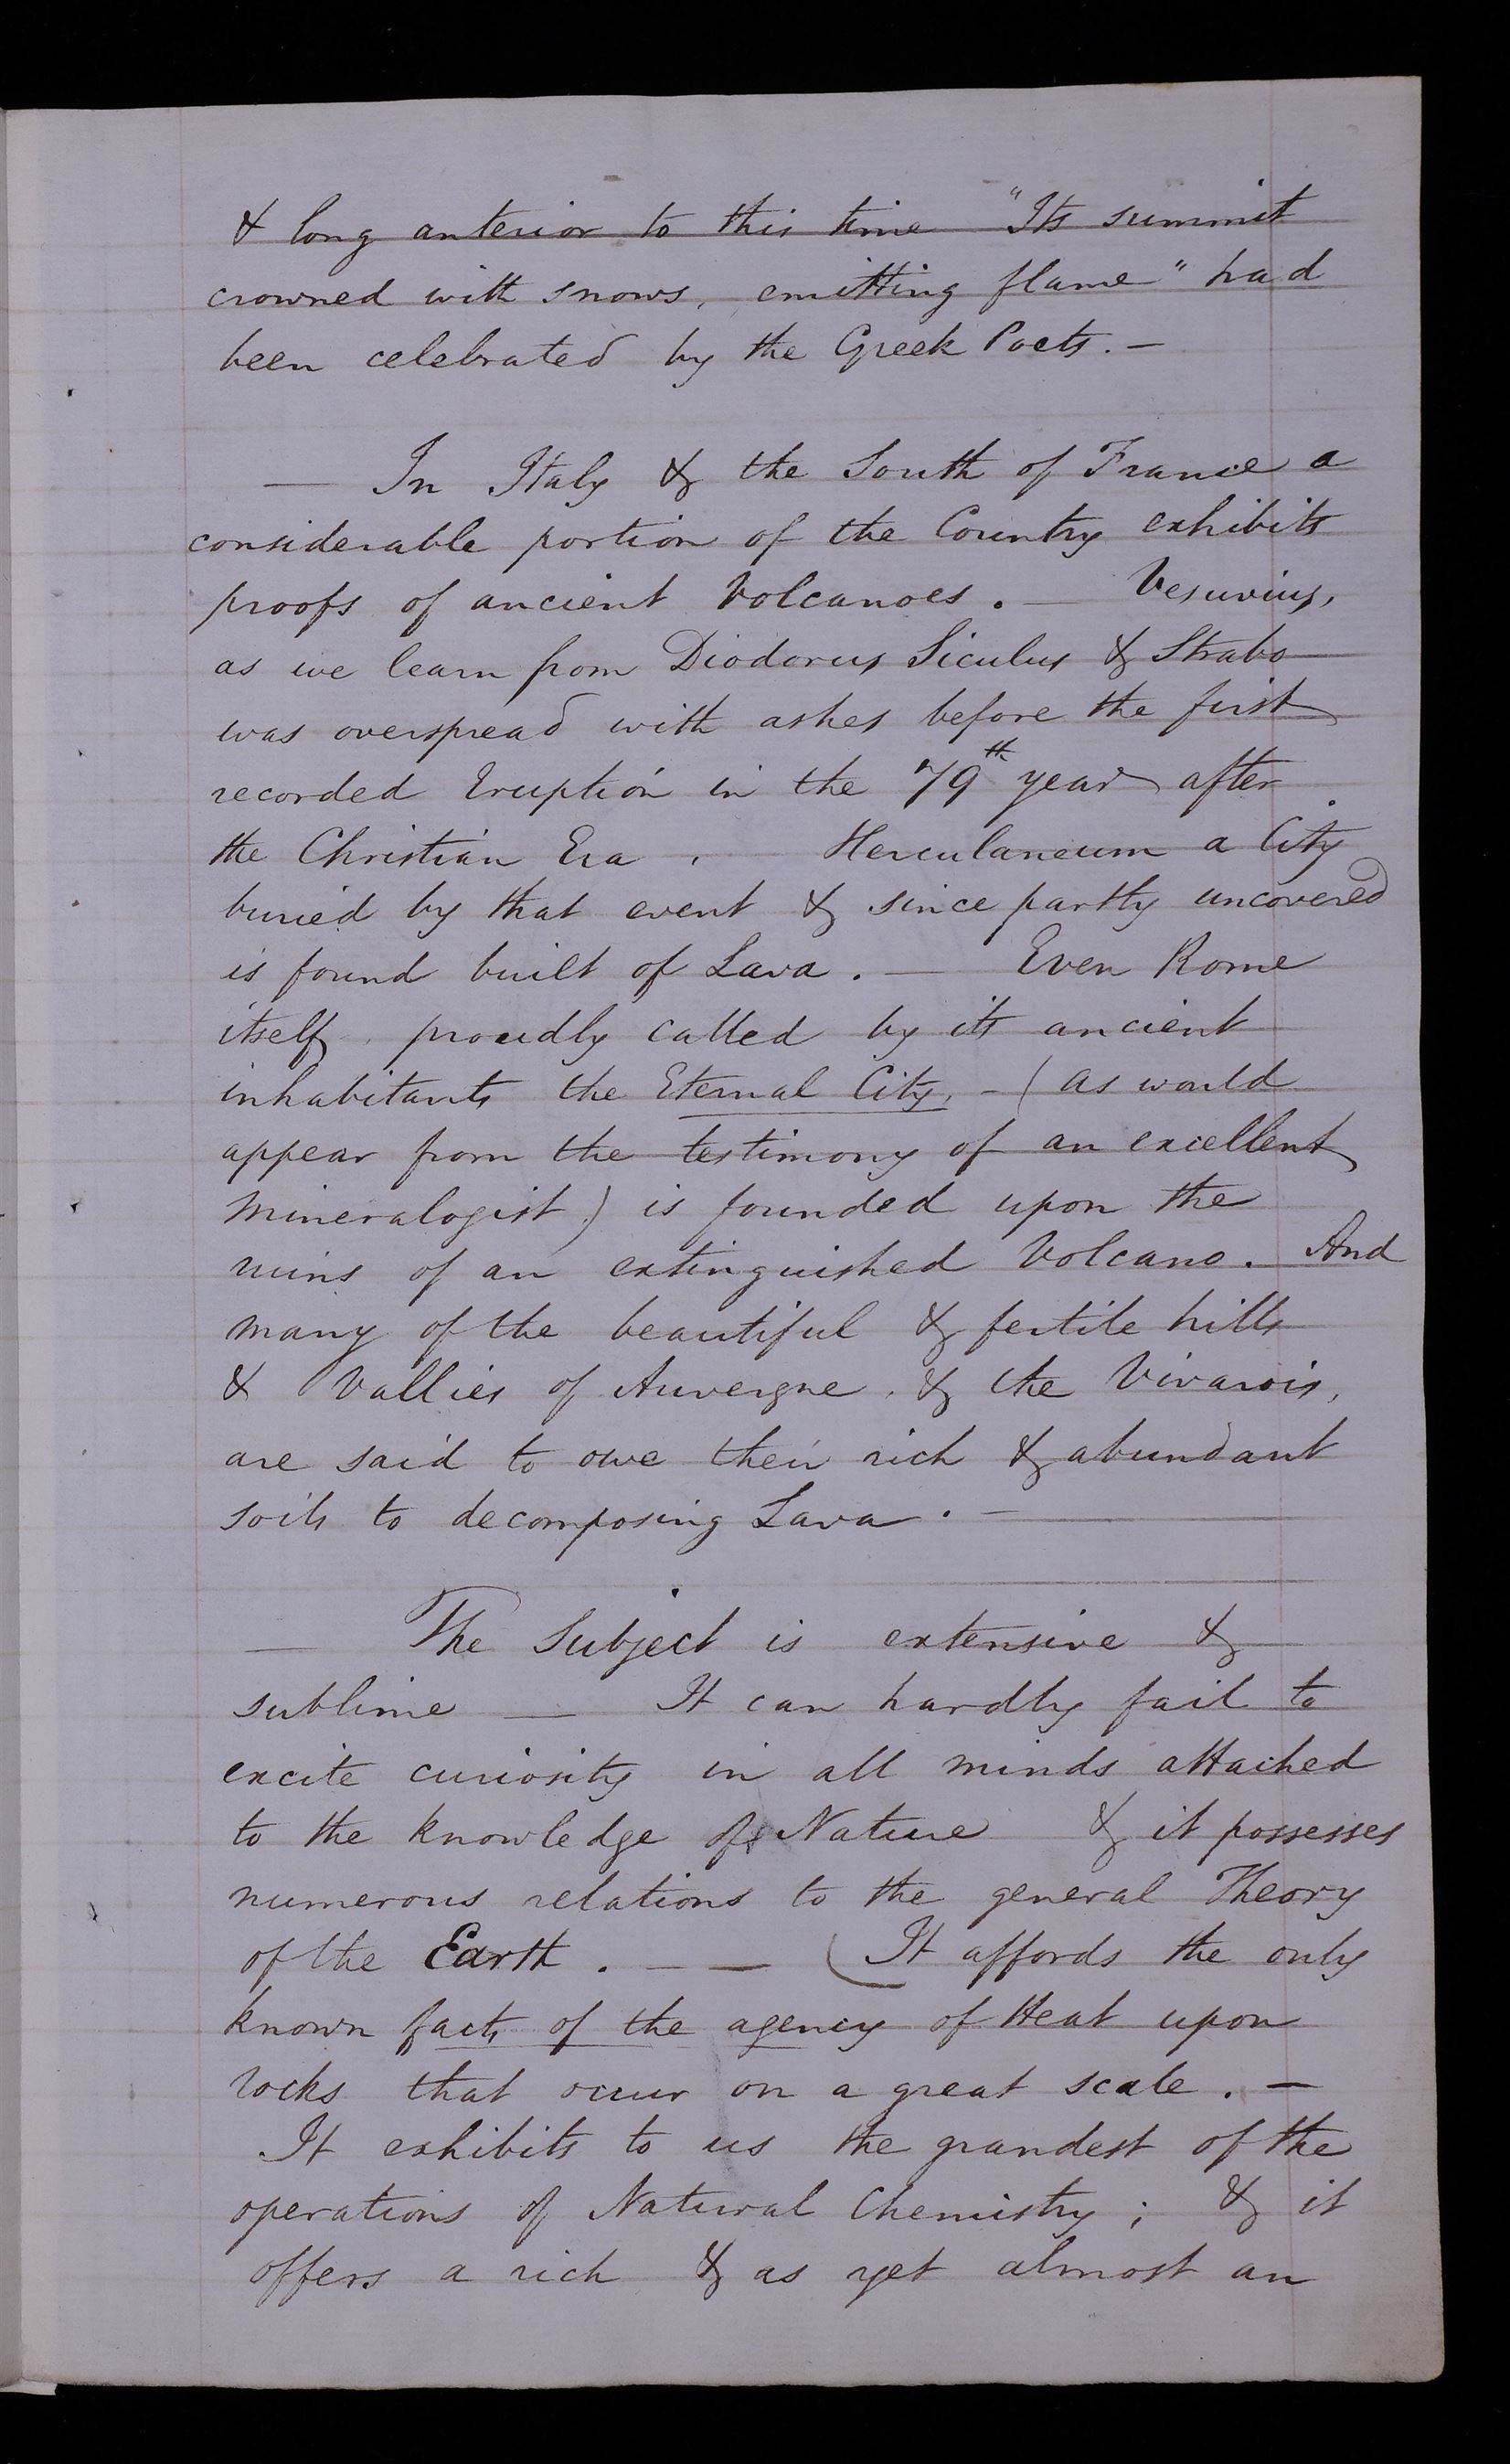 & long anterior to this time "Its summit
crowned with snows, emitting flame" had
been celebrated by the Greek Poets. —
— In Italy & the South of France a
considerable portion of the Country exhibits
proofs of ancient Volcanoes. — Vesuvius,
as we learn from Diodorus Siculus & Strabo
was overspread with ashes before the first
recorded Eruption in the 79th year after
the Christian Era. Herculaneum a City
buried by that event & since partly uncovered
is found built of Lava. — Even Rome
itself, proudly called by its ancient
inhabitants the Eternal City, - (as would
appear from the testimony of an excellent
Mineralogist) is founded upon the
ruins of an extinguished Volcano. And
many of the beautiful & fertile hills
& Vallies of Auvergne, & the Vivarois,
are said to owe their rich & abundant
soils to decomposing Lava. —
— The Subject is extensive &
sublime — It can hardly fail to
excite curiosity in all minds attached
to the knowledge of Nature & it possesses
numerous relations to the general Theory
of the Earth. — — (It affords the only
known facts of the agency of Heat upon
rocks that occur on a great scale. —
It exhibits to us the grandest of the
operations of Natural Chemistry; & it
offers a rich & as yet almost an